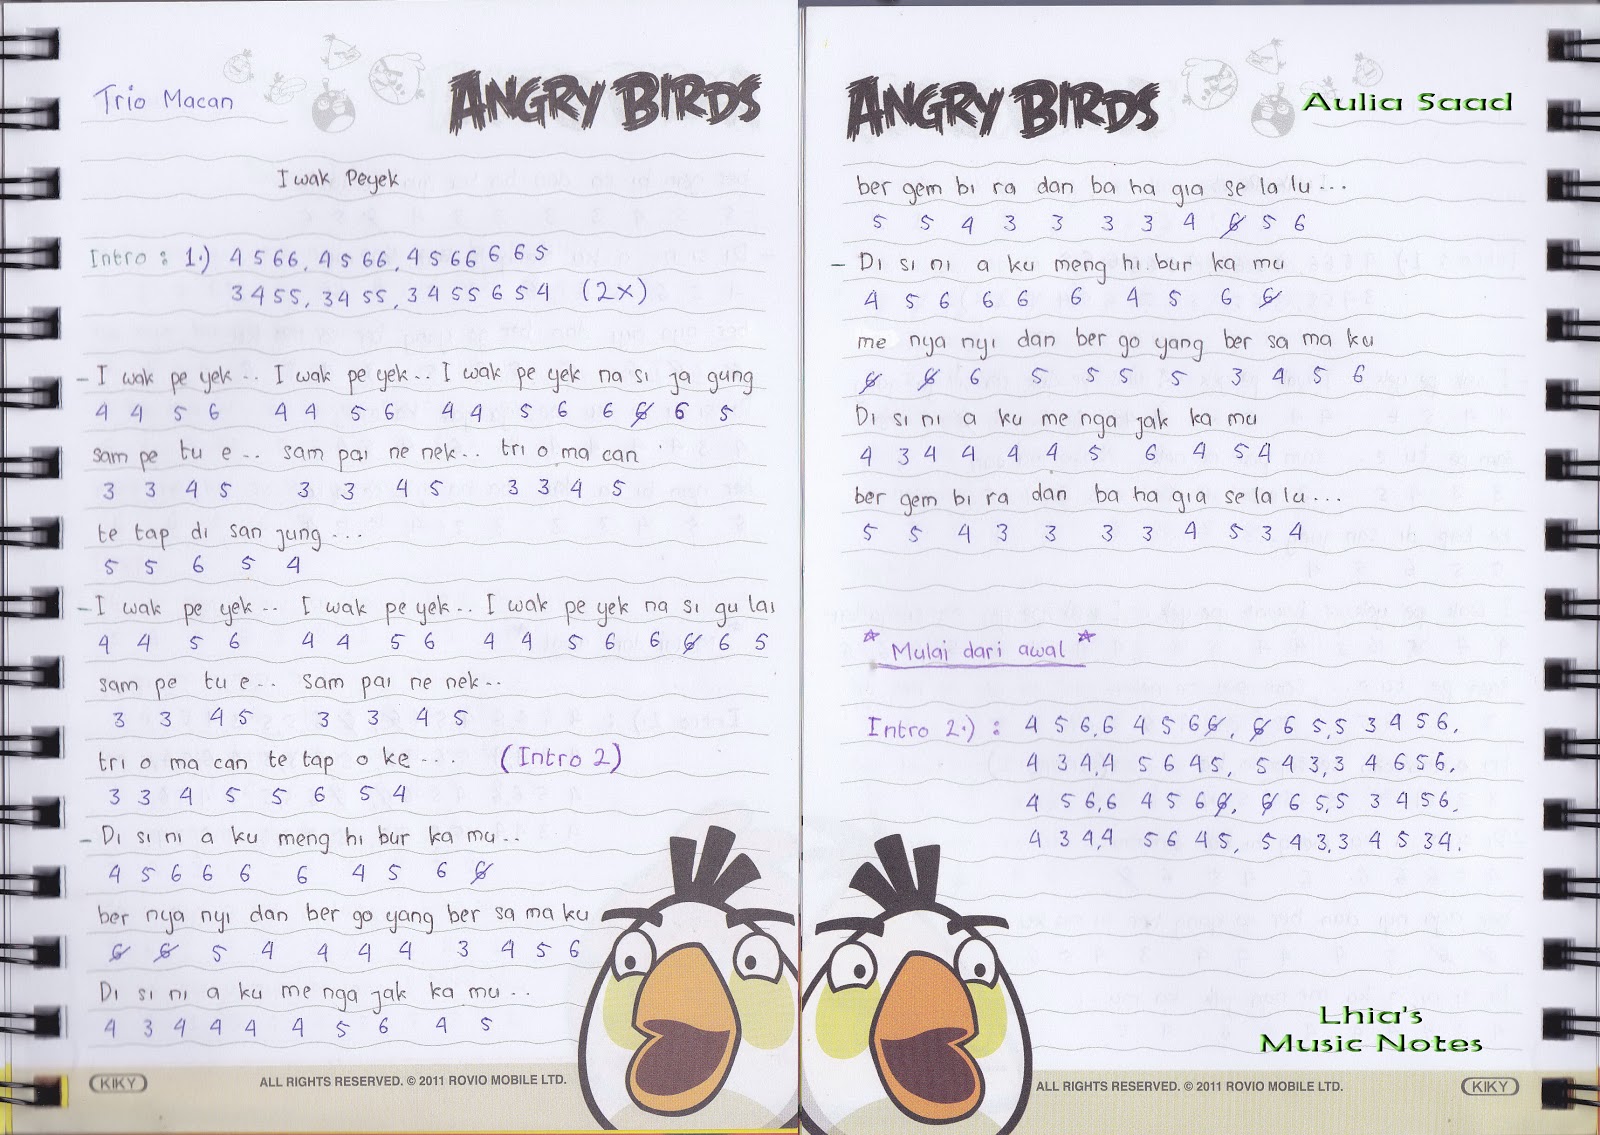 Trio Macan
ANGRY BIRDS
Iwak Peyek
Intro : 1.) 4 5 6 6, 4 5 6 6, 4 5 6 6 6 6 5
3 4 5 5, 3 4 5 5, 3 4 5 5 6 5 4 (2x)
- I wak pe yek .. I wak pe yek .. I wak pe yek na si ja gung
4 4 5 6 4 4 5 6 4 4 5 6 6 6̸ 6 5
sam pe tu e .. sam pai ne nek .. tri o ma can
3 3 4 5 3 3 4 5 3 3 4 5
te tap di san jung ...
5 5 6 5 4
- I wak pe yek .. I wak pe yek .. I wak pe yek na si gu lai
4 4 5 6 4 4 5 6 4 4 5 6 6 6̸ 6 5
sam pe tu e .. sam pai ne nek ..
3 3 4 5 3 3 4 5
tri o ma can te tap o ke ... (Intro 2)
3 3 4 5 5 6 5 4
- Di si ni a ku meng hi bur ka mu ..
4 5 6 6 6 6 4 5 6 6̸
ber nya nyi dan ber go yang ber sa ma ku
6̸ 6̸ 5 4 4 4 4 3 4 5 6
Di si ni a ku me nga jak ka mu ..
4 3 4 4 4 4 5 6 4 5
KIKY
ALL RIGHTS RESERVED. © 2011 ROVIO MOBILE LTD.
ANGRY BIRDS
Aulia Saad
ber gem bi ra dan ba ha gia se la lu ...
5 5 4 3 3 3 3 4 6̸ 5 6
- Di si ni a ku meng hi bur ka mu
4 5 6 6 6 6 4 5 6 6̸
me nya nyi dan ber go yang ber sa ma ku
6̸ 6̸ 6 5 5 5 5 3 4 5 6
Di si ni a ku me nga jak ka mu
4 3 4 4 4 4 5 6 4 5 4
ber gem bi ra dan ba ha gia se la lu ...
5 5 4 3 3 3 3 4 5 3 4
* Mulai dari awal *
Intro 2.) : 4 5 6,6 4 5 6 6̸, 6̸ 6 5,5 3 4 5 6,
4 3 4,4 5 6 4 5, 5 4 3,3 4 6 5 6,
4 5 6,6 4 5 6 6̸, 6̸ 6 5,5 3 4 5 6,
4 3 4,4 5 6 4 5, 5 4 3,3 4 5 3 4.
Lhia's
Music Notes
ALL RIGHTS RESERVED. © 2011 ROVIO MOBILE LTD.
KIKY